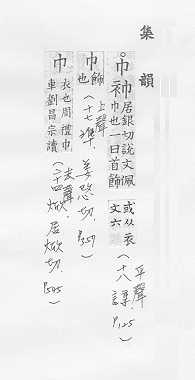 集韻
巾
居銀切說文佩
巾也一曰首飾
或从衣
文六
(平聲
十八諄. P.125)
巾
飾
也
(上聲
十七準. 姜愍切. P.357)
巾
衣也周禮巾
車劉昌宗讀
(去聲
二十四焮. 居焮切. P.545)